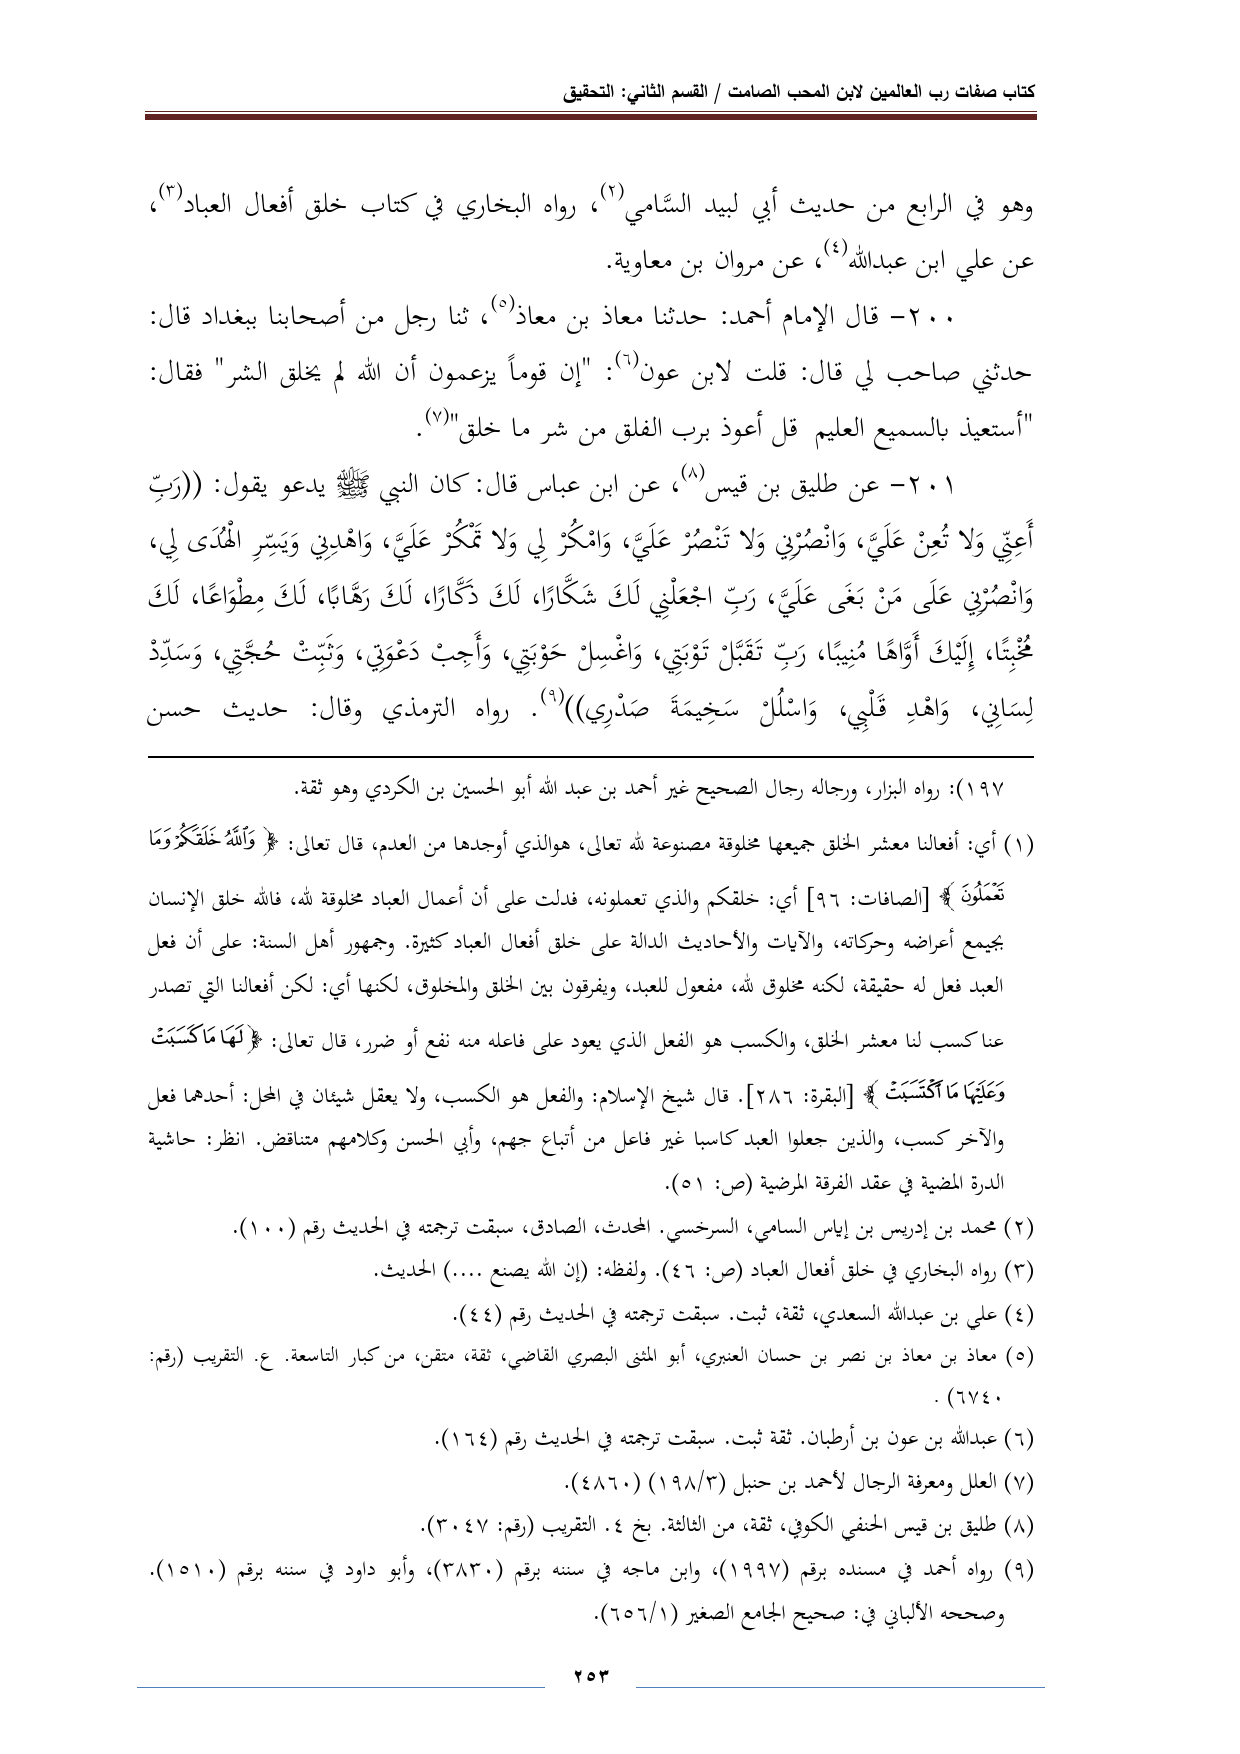 كتاب صفات رب العالمين لابن المحب الصامت / القسم الثاني: التحقيق
وهو في الرابع من حديث أبي لبيد السَّامي(٢)، رواه البخاري في كتاب خلق أفعال العباد(٣)،
عن علي ابن عبدالله(٤)، عن مروان بن معاوية.
٢٠٠- قال الإمام أحمد: حدثنا معاذ بن معاذ(٥)، ثنا رجل من أصحابنا ببغداد قال:
حدثني صاحب لي قال: قلت لابن عون(٦): "إن قوماً يزعمون أن الله لم يخلق الشر" فقال:
"أستعيذ بالسميع العليم قل أعوذ برب الفلق من شر ما خلق"(٧).
٢٠١- عن طليق بن قيس(٨)، عن ابن عباس قال: كان النبي ﷺ يدعو يقول: ((رَبِّ
أَعِنِّي وَلا تُعِنْ عَلَيَّ، وَانْصُرْنِي وَلا تَنْصُرْ عَلَيَّ، وَامْكُرْ لِي وَلا تَمْكُرْ عَلَيَّ، وَاهْدِنِي وَيَسِّرِ الْهُدَى لِي،
وَانْصُرْنِي عَلَى مَنْ بَغَى عَلَيَّ، رَبِّ اجْعَلْنِي لَكَ شَكَّارًا، لَكَ ذَكَّارًا، لَكَ رَهَّابًا، لَكَ مِطْوَاعًا، لَكَ
مُخْبِتًا، إِلَيْكَ أَوَّاهًا مُنِيبًا، رَبِّ تَقَبَّلْ تَوْبَتِي، وَاغْسِلْ حَوْبَتِي، وَأَجِبْ دَعْوَتِي، وَثَبِّتْ حُجَّتِي، وَسَدِّدْ
لِسَانِي، وَاهْدِ قَلْبِي، وَاسْلُلْ سَخِيمَةَ صَدْرِي))(٩). رواه الترمذي وقال: حديث حسن
١٩٧): رواه البزار، ورجاله رجال الصحيح غير أحمد بن عبد الله أبو الحسين بن الكردي وهو ثقة.
(١) أي: أفعالنا معشر الخلق جميعها مخلوقة مصنوعة لله تعالى، هوالذي أوجدها من العدم، قال تعالى: ﴿ وَٱللَّهُ خَلَقَكُمْ وَمَا
تَعْمَلُونَ ﴾ [الصافات: ٩٦] أي: خلقكم والذي تعملونه، فدلت على أن أعمال العباد مخلوقة لله، فالله خلق الإنسان
بجيمع أعراضه وحركاته، والآيات والأحاديث الدالة على خلق أفعال العباد كثيرة. وجمهور أهل السنة: على أن فعل
العبد فعل له حقيقة، لكنه مخلوق لله، مفعول للعبد، ويفرقون بين الخلق والمخلوق، لكنها أي: لكن أفعالنا التي تصدر
عنا كسب لنا معشر الخلق، والكسب هو الفعل الذي يعود على فاعله منه نفع أو ضرر، قال تعالى: ﴿ لَهَا مَا كَسَبَتْ
وَعَلَيْهَا مَا ٱكْتَسَبَتْ ﴾ [البقرة: ٢٨٦]. قال شيخ الإسلام: والفعل هو الكسب، ولا يعقل شيئان في المحل: أحدهما فعل
والآخر كسب، والذين جعلوا العبد كاسبا غير فاعل من أتباع جهم، وأبي الحسن وكلامهم متناقض. انظر: حاشية
الدرة المضية في عقد الفرقة المرضية (ص: ٥١).
(٢) محمد بن إدريس بن إياس السامي، السرخسي. المحدث، الصادق، سبقت ترجمته في الحديث رقم (١٠٠).
(٣) رواه البخاري في خلق أفعال العباد (ص: ٤٦). ولفظه: (إن الله يصنع ....) الحديث.
(٤) علي بن عبدالله السعدي، ثقة، ثبت. سبقت ترجمته في الحديث رقم (٤٤).
(٥) معاذ بن معاذ بن نصر بن حسان العنبري، أبو المثنى البصري القاضي، ثقة، متقن، من كبار التاسعة. ع. التقريب (رقم:
٦٧٤٠) .
(٦) عبدالله بن عون بن أرطبان. ثقة ثبت. سبقت ترجمته في الحديث رقم (١٦٤).
(٧) العلل ومعرفة الرجال لأحمد بن حنبل (١٩٨/٣) (٤٨٦٠).
(٨) طليق بن قيس الحنفي الكوفي، ثقة، من الثالثة. بخ ٤. التقريب (رقم: ٣٠٤٧).
(٩) رواه أحمد في مسنده برقم (١٩٩٧)، وابن ماجه في سننه برقم (٣٨٣٠)، وأبو داود في سننه برقم (١٥١٠).
وصححه الألباني في: صحيح الجامع الصغير (٦٥٦/١).
٢٥٣